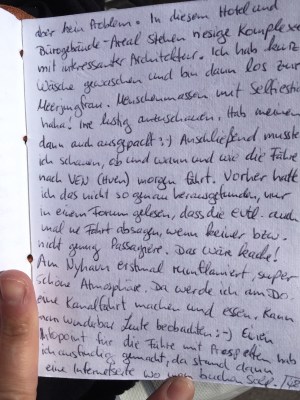 aber kein Problem. In diesem Hotel und
Bürogebäude-Areal stehen riesige Komplexe
mit interessanter Architektur. Ich hab heute
Wäsche gewaschen und bin dann los zur
Meerjungfrau. Menschenmassen mit Selfiestick
haha! Irre lustig anzuschauen. Hab meinen
dann auch ausgepackt :-) Anschließend musste
ich schauen, ob und wann und wie die Fähre
nach VEN (Hven) morgen fährt. Vorher hatte
ich das nicht so genau herausgefunden, nur
in einem Forum gelesen, dass die evtl. auch
mal ne Fahrt absagen, wenn keiner bzw.
nicht genug Passagiere. Das wäre leider!
Am Nyhavn erstmal rumflaniert, super
schöne Atmosphäre. Da werde ich am Do.
eine Kanalfahrt machen und essen. Kann
man wunderbar Leute beobachten :-) Einen
Infopoint für die Fähre mit Prospekten hab
ich ausfindig gemacht, da stand dann
eine Internetseite wo man buchen soll.